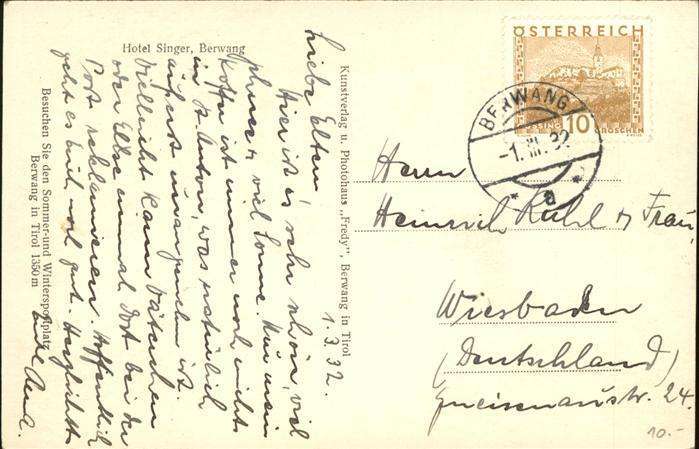 Hotel Singer, Berwang
Besuchen Sie den Sommer- und Wintersportplatz
Berwang in Tirol 1350 m
Kunstverlag u. Photohaus „Fredy“, Berwang in Tirol
1.3.32.
Liebe Eltern!
Hier ist es sehr schön, viel
Schnee u. viel Sonne. Nur mein
Koffer ist immer noch nicht
in St. Anton, was natürlich
äußerst unangenehm ist.
Vielleicht kann Väterchen
oder Ellse einmal dort bei der
Post reklamieren. Hoffentlich
geht es Euch noch gut. Herzlichst
Eure
ÖSTERREICH
10
GROSCHEN
BERWANG
-1.III.32
* a *
Herrn
Heinrich Kühl u Frau
Wiesbaden
(Deutschland)
Gneisenaustr. 24
10.-